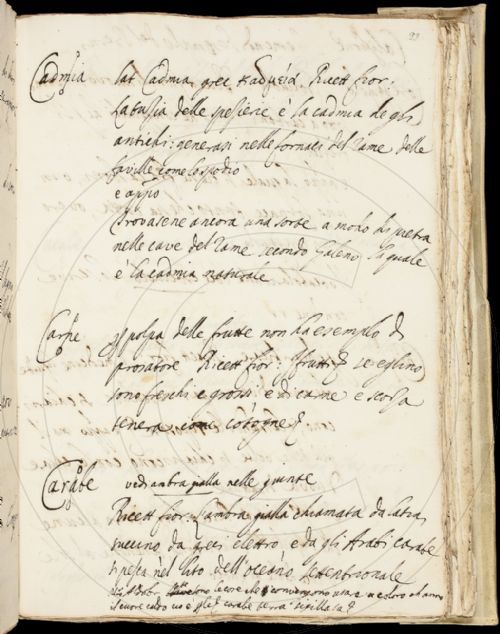 Cadmia lat Cadmia grec καδμεία Ricett fior.
La tuzia delle spezierie è la cadmia degli
antichi: generasi nelle fornaci del rame delle
faville come lo spodio
e appo
Trovasene ancora una sorte a modo di pietra
nelle cave del rame secondo Galeno la quale
è la cadmia naturale
Carne p polpa delle frutte non ha esemplo di
prosatore Ricett fior: frutti se eglino
sono freschi e grossi e di carne e scorza
tenera come cotogne
Carabe vedi ambra gialla nelle giunte
Ricett fior: l'ambra gialla chiamata da latini
succino da greci elettro e da gli Arabi carabe
si pesca nel lito dell'oceano settentrionale
terra sigillata